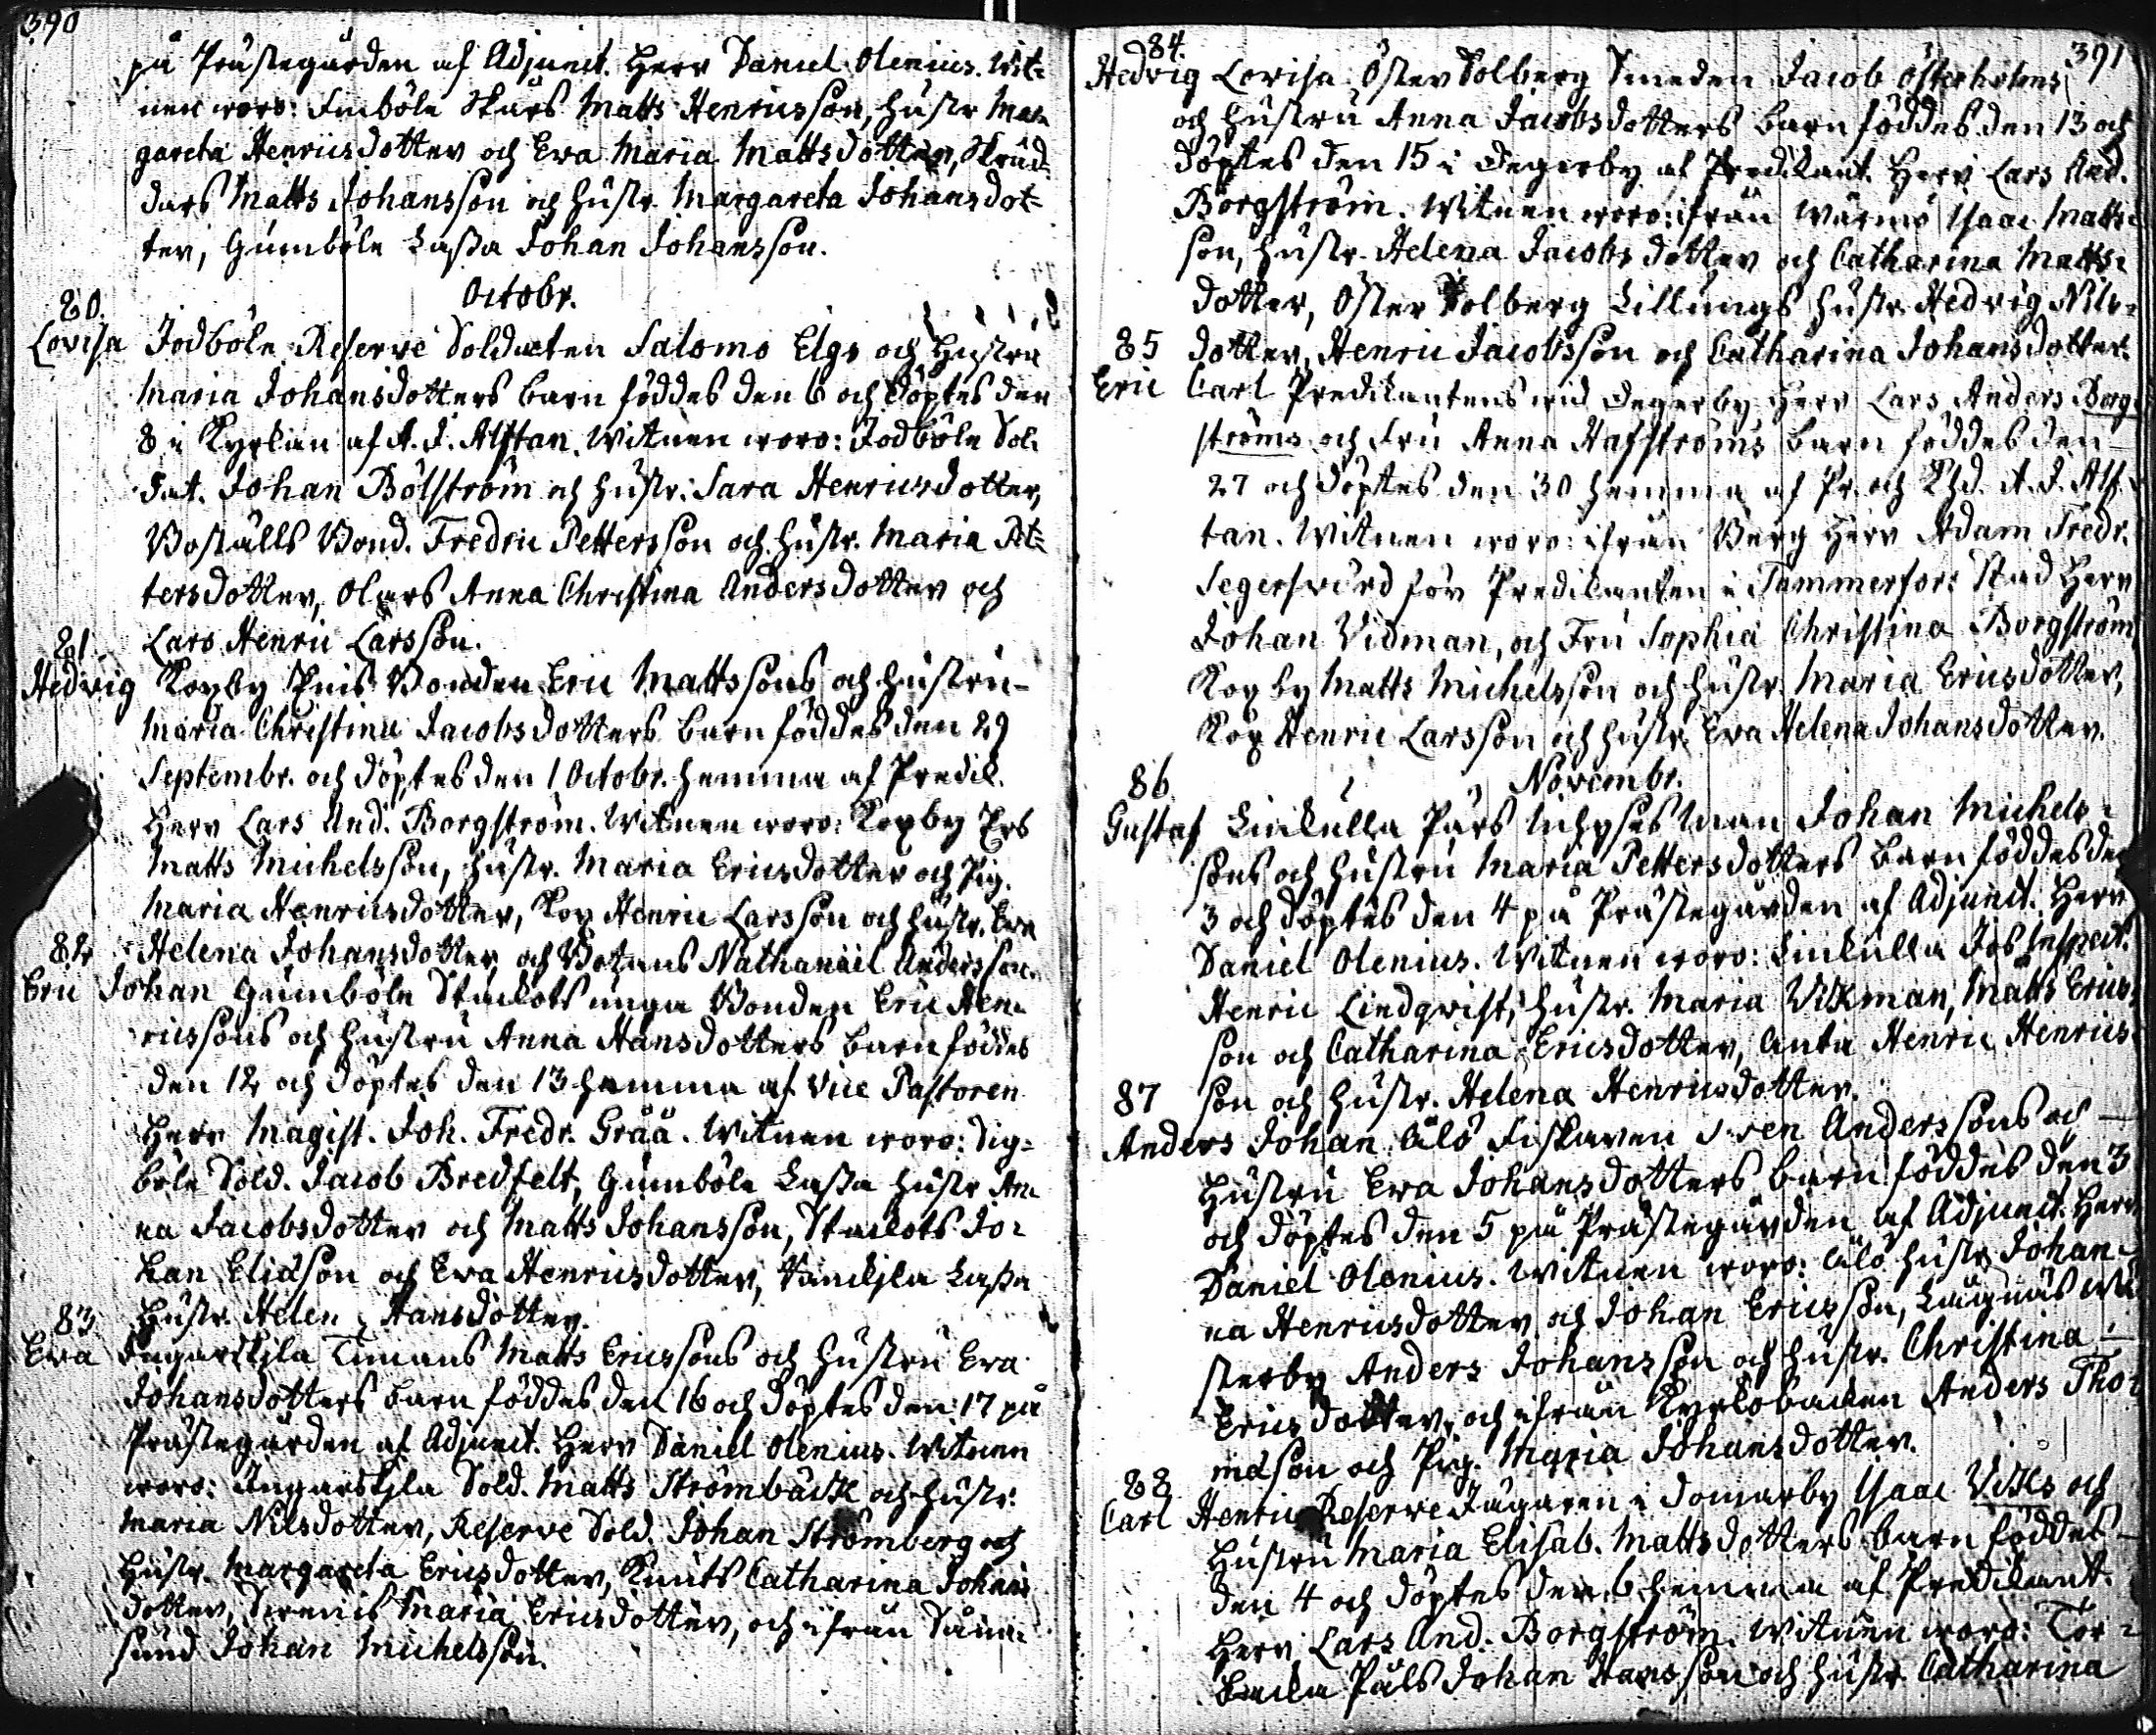 390
på Prästegården af Adjunct. Herr Daniel Olenius. Wit-
nen woro: Finböle Skurs Matts Henricsson, hustr Mar-
gareta Henricsdotter och Ewa Maria Mattsdotter, Skräd-
dars Matts Johansson och hustr. Margareta Johansdot-
ter, Gumböle Lassa Johan Johansson.
Octobr.
80.
Lovisa Jodböle Reserve Soldaten Salomo Elgs och Hustru
Maria Johansdotters barn föddes den 6 och döptes den
8 i Kyrkan af A. J. Alftan. Witnen woro: Jodböle Sol-
dat. Johan Bölström och hustr: Sara Henricsdotter,
Boställs Bond. Fredric Pettersson och hustr. Maria Pet-
tersdotter, Olars Anna Christina Andersdotter och
Lars Henric Larsson.
81.
Hedvig Köpby Bonden Eric Mattssons och hustru
Maria Christina Jacobsdotters barn föddes den 29
Septembr. och döptes den 1 Octobr. hemma af Predik.
Herr Lars And. Borgström. Witnen woro: Köpby Ers
Matts Michelsson, hustr. Maria Ericsdotter och Pig.
Maria Henricsdotter, Köp Henric Larsson och hustr. Ewa
Helena Johansdotter, och Nathanaël Andersson.
82
Eric Johan Gumböle Stackots unga Bonden Eric Hen-
ricssons och hustru Anna Hansdotters barn föddes
den 12 och döptes den 13 hemma af Vice Pastoren
Herr Magist. Joh. Fredr. Gråå. Witnen woro: Sig-
böle Sold. Jacob Bredfelt, Gumböle Lassa hustr An-
na Jacobsdotter och Matts Johansson, Stackots Jo-
han Eliason och Ewa Henricsdotter, Lassa
Hustr. Helena Hansdotter.
83
Ewa Ingarskila Timans Matts Ericssons och Hustru Ewa
Johansdotters barn föddes den 16 och döptes den 17 på
Prästegården af Adjunct. Herr Daniel Olenius. Witnen
woro: Ingarskila Sold. Matts Strömbäck och hustr.
Maria Nilsdotter, Reserve Sold. Johan Strömberg och
Hustr. Margareta Ericsdotter, Knuts Catharina Johans
dotter, Maria Ericsdotter, och ifrån
sund Johan Michelsson.
391
84.
Hedvig Lovisa Öster Solberg Smeden Jacob Österholms
och Hustru Anna Jacobsdotters barn föddes den 13 och
döptes den 15 i Degerby af Predikant. Herr Lars And.
Borgström. Witnen woro: ifrån Wärmö Isaac Matts-
son, hustr. Helena Jacobsdotter och Catharina Matts-
dotter, Öster Solberg Lillungs hustr. Hedvig Nils-
dotter, Henric Jacobsson och Catharina Johansdotter.
85
Eric Carl Predikantens wid Degerby Herr Lars Anders Borg-
ströms och Fru Anna Hafströms barn föddes den
27 och döptes den 30 hemma af Pr. och Khd. A. J. Alf-
tan. Witnen woro: ifrån Berg Herr Adam Fredr.
Segersvärd för Predikanten i Tammerfors Stad Herr
Johan Vidman, och Fru Sophia Christina Borgström
Köpby Matts Michelsson och hustr. Maria Ericsdotter,
Köp Henric Larsson och hustr. Ewa Helena Johansdotter.
Novembr.
86
Gustaf Linkulla Pärs Inhyses Man Johan Michels-
sons och Hustru Maria Pettersdotters barn föddes den
3 och döptes den 4 på Prästegården af Adjunct. Herr
Daniel Olenius. Witnen woro: Linkulla Jos Inspect.
Henric Lindqvist, hustr. Maria Vikman, Matts Erics-
son och Catharina Ericsdotter, Anta Henric Henrics-
son och hustr. Helena Henricsdotter.
87
Anders Johan Älö Fiskaren Sven Anderssons och
Hustru Ewa Johansdotters barn föddes den 3
och döptes den 5 på Prästegården af Adjunct. Herr
Daniel Olenius. Witnen woro: Älö hustr Johan-
na Henricsdotter och Johan Ericsson, Lågnäs Wä-
sterby Anders Johansson och hustr. Christina
Ericsdotter, och ifrån Kyrkobacken Anders Tho-
masson och Pig. Maria Johansdotter.
88
Carl Henric Reserve Jägaren i Domarby Isaac Viks och
Hustru Maria Elisab. Mattsdotters barn föddes
den 4 och döptes den 6 hemma af Predikant.
Herr Lars And. Borgström. Witnen woro: Tor-
backa Påls Johan Hansson och hustr Catharina